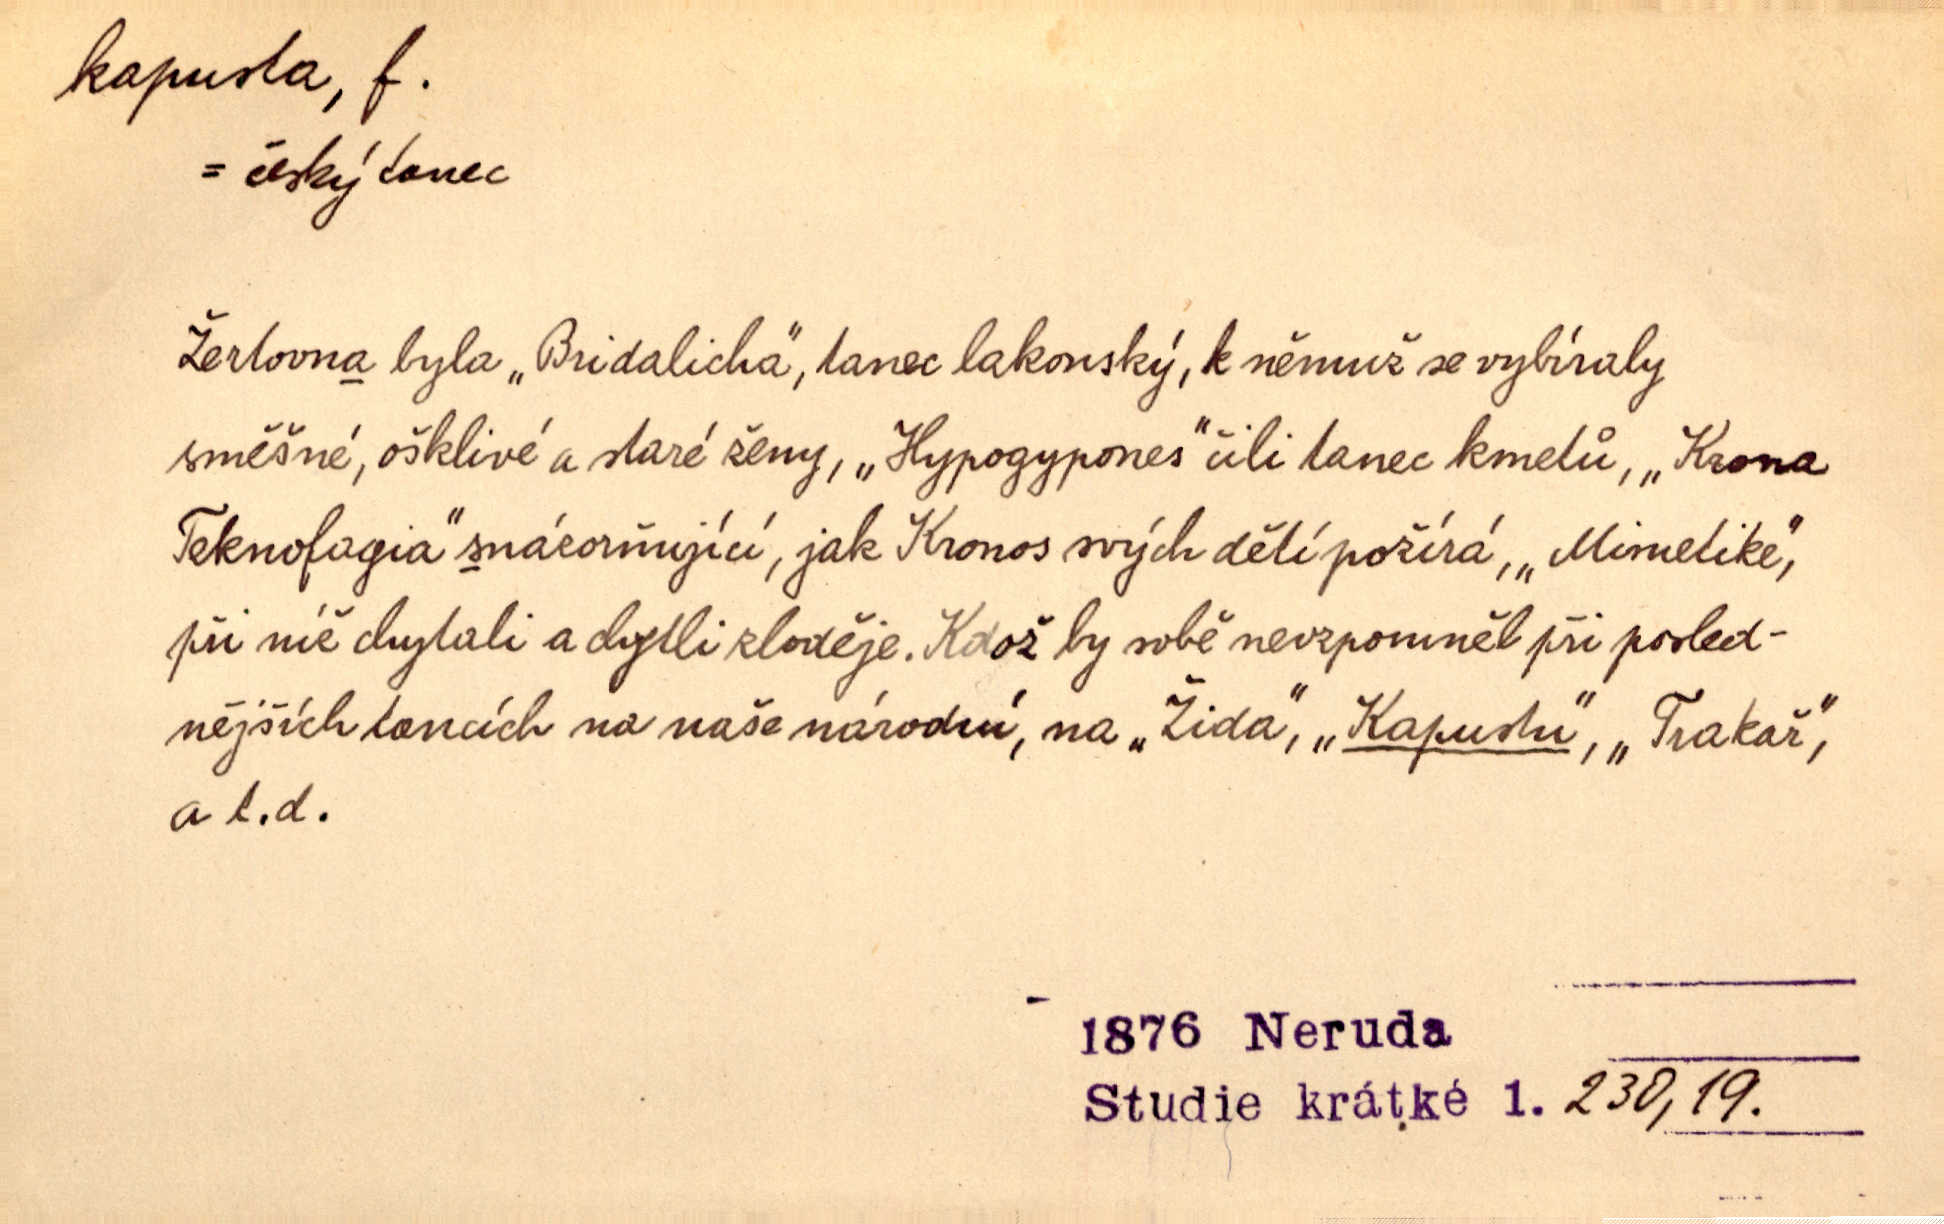 kapusta, f.
= český tanec
Žertovna byla „Bridalicha“, tanec lakonský, k němuž se vybíraly
směšné, ošklivé a staré ženy, „Hypogypones“ čili tanec kmetů, „Krona
Teknofagia“ snázorňující, jak Kronos svých dětí požírá, „Mimetike“,
při níž chytali a chytli zloděje. Kdož by sobě nevzpomněl při posled-
nějších tancích na naše národní, na „Žida“, „Kapustu“, „Trakař“,
a t.d.
1876 Neruda
Studie krátké 1. 230, 19.